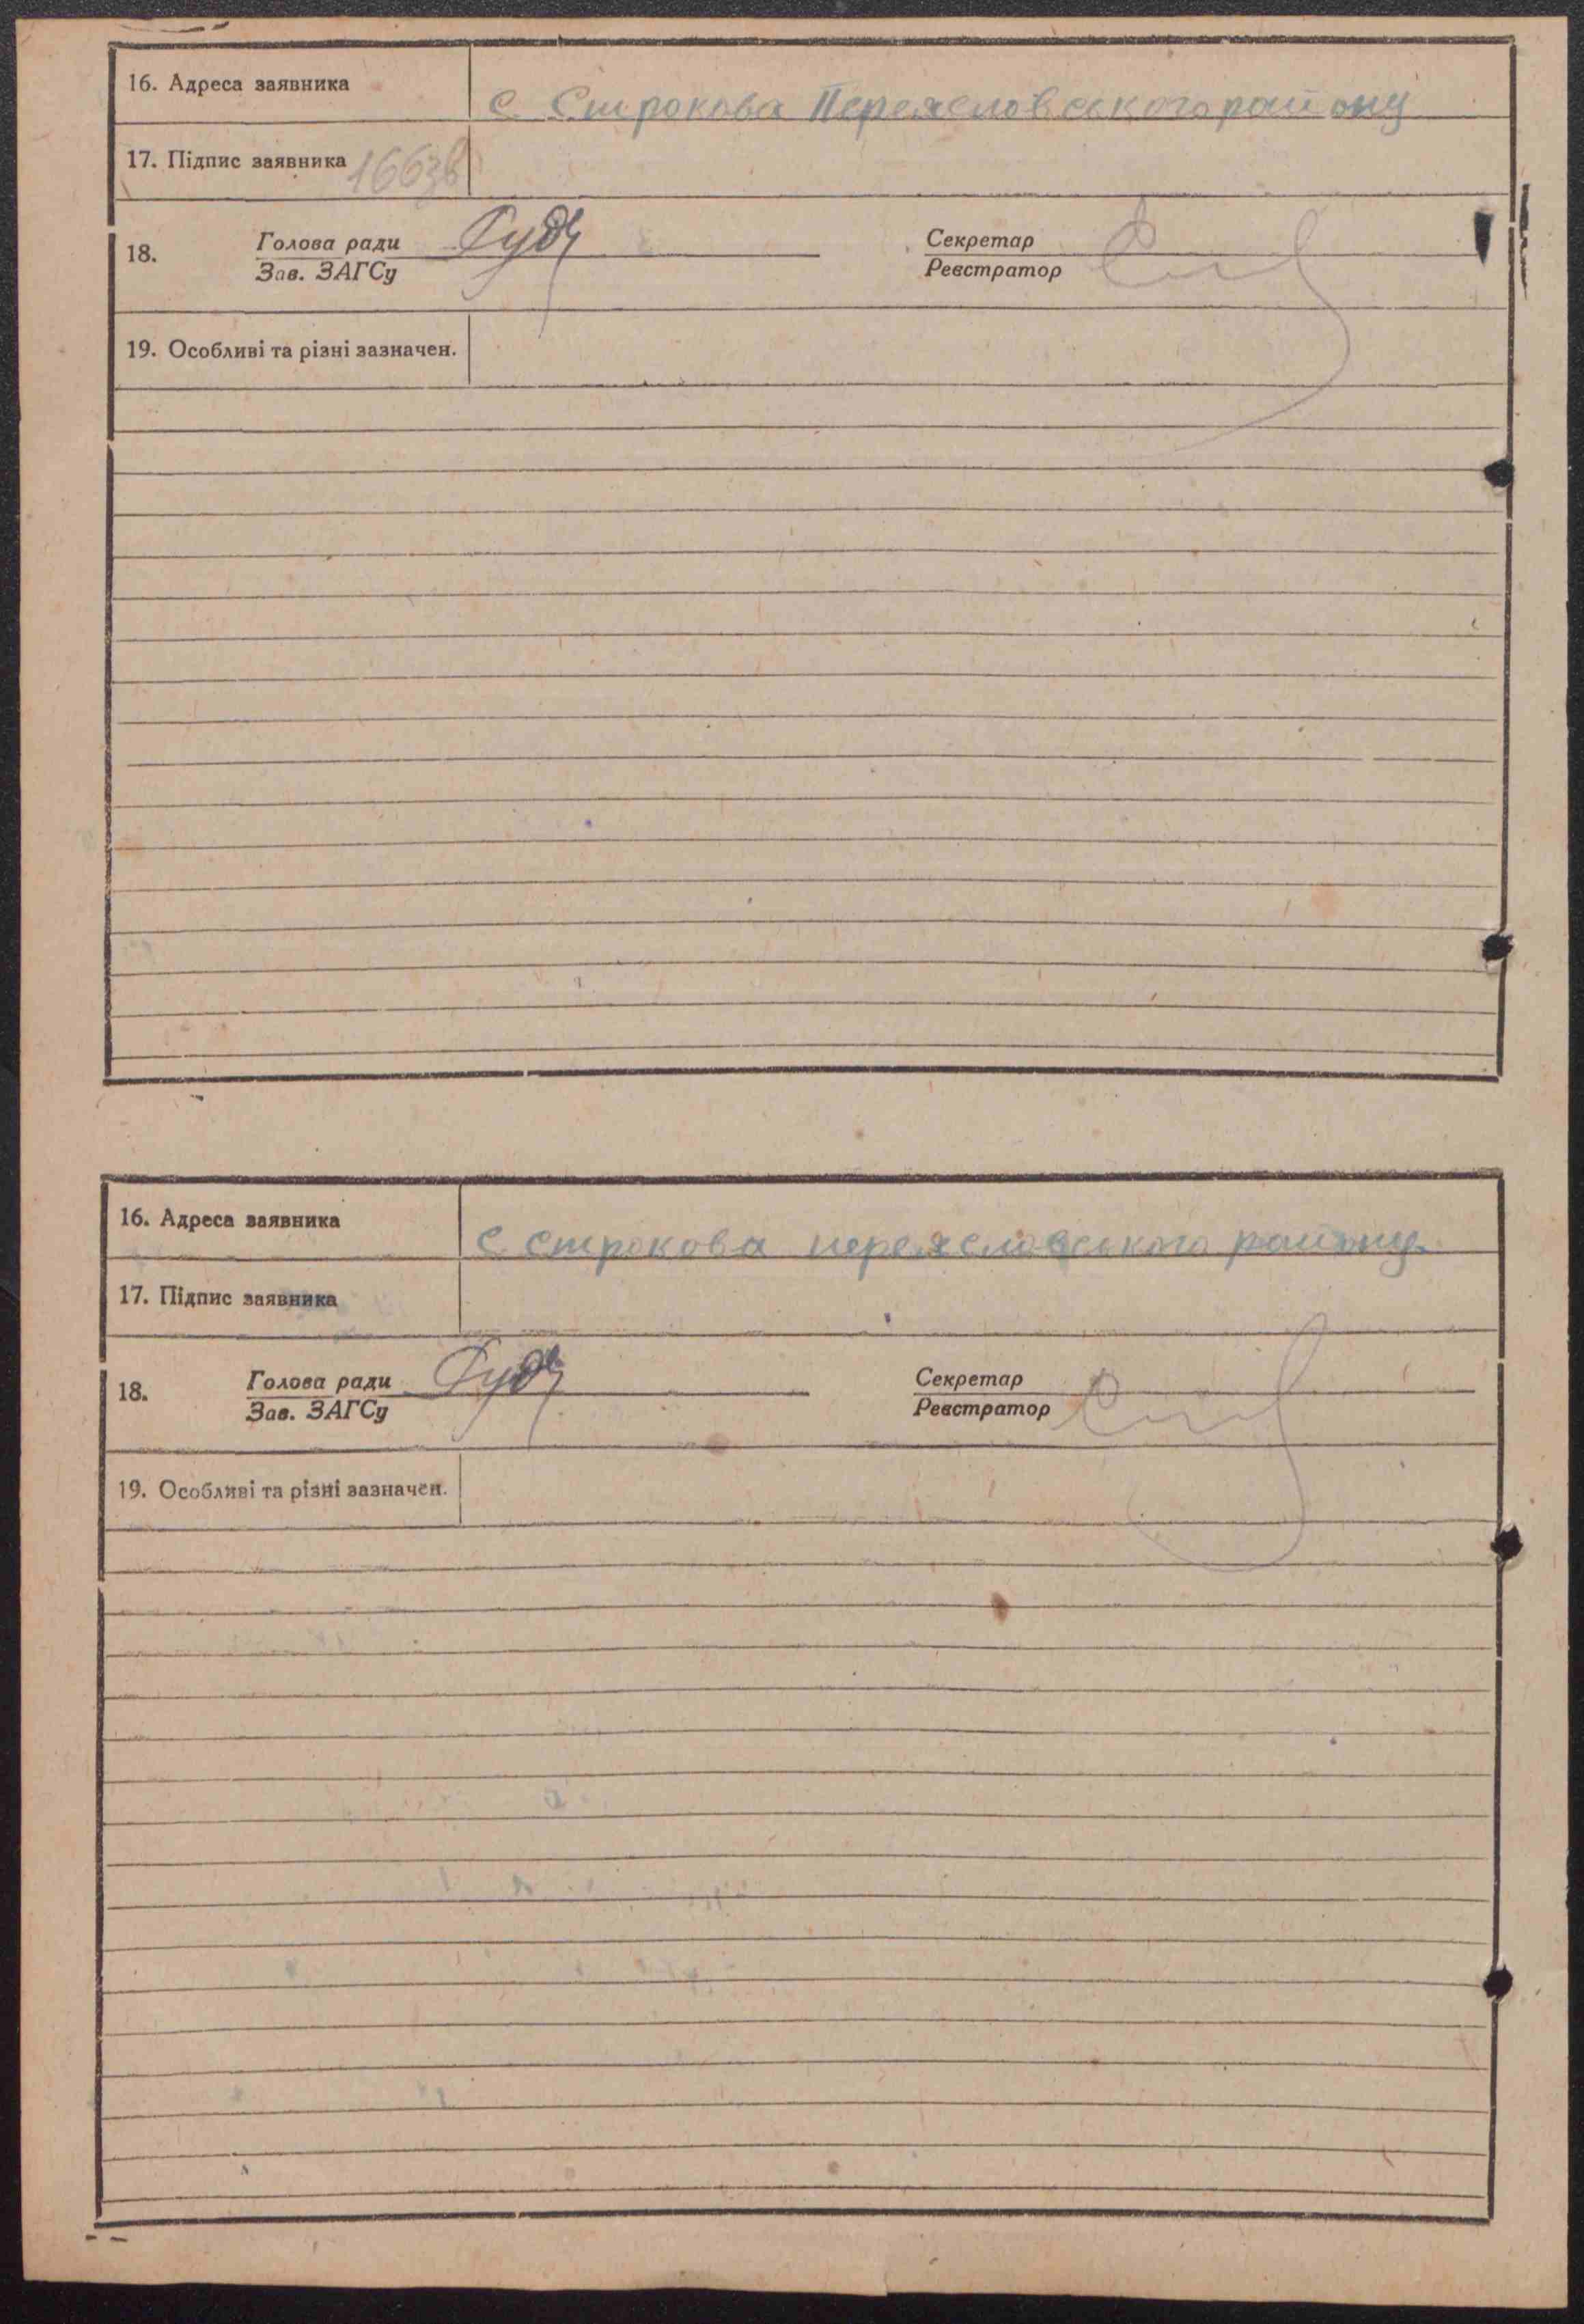 16. Адреса заявника с. Строкова Переясловського району
17. Підпис заявника
18. Голова ради Секретар
Зав. ЗАГСу Реєстратор
19. Особливі та різні зазначен.
16. Адреса заявника с строкова переясловського району
17. Підпис заявника
18. Голова ради Секретар
Зав. ЗАГСу Реєстратор
19. Особливі та різні зазначен.